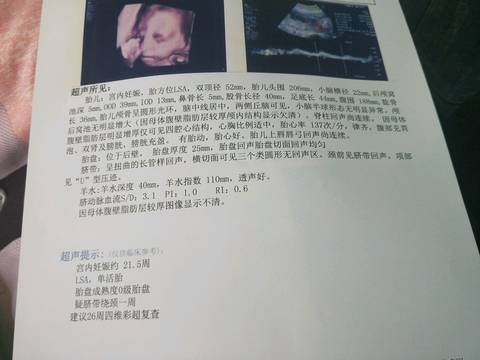 超声所见:
胎儿: 宫内妊娠, 胎方位LSA, 双顶径 52mm, 胎儿头围 206mm, 小脑横径 22mm, 后颅窝
池深 5mm, OOD 39mm, IOD 13mm, 鼻骨长 5mm, 股骨长径 40mm, 足底长 44mm, 腹围 168mm, 肱骨
长 36mm, 胎儿颅骨呈圆形光环, 脑中线居中, 两侧丘脑可见, 小脑半球形态无明显异常, 颅
后窝池无明显增大 (因母体腹壁脂肪层较厚颅内结构显示欠清)。脊柱回声尚连续。 因母体
腹壁脂肪层明显增厚仅可见四腔心结构, 心胸比例适中, 胎心率 137次/分, 律齐。腹部见胃
泡、双肾及膀胱, 膀胱充盈。 有胎动, 胎心好。胎儿上唇唇弓回声尚连续。
胎盘: 位于后壁, 胎盘厚度 25mm, 胎盘回声胎盘切面回声均匀
脐带: 呈扭曲的长管样回声, 横切面可见三个类圆形无回声区。颈前见脐带回声, 项部
见“U”型压迹。
羊水:羊水深度 40mm, 羊水指数 110mm, 透声好。
脐动脉血流S/D: 3.1 PI: 1.0 RI: 0.6
因母体腹壁脂肪层较厚图像显示不清。
超声提示: (仅供临床参考):
宫内妊娠约 21.5周
LSA, 单活胎
胎盘成熟度0级胎盘
疑脐带绕颈一周
建议26周四维彩超复查